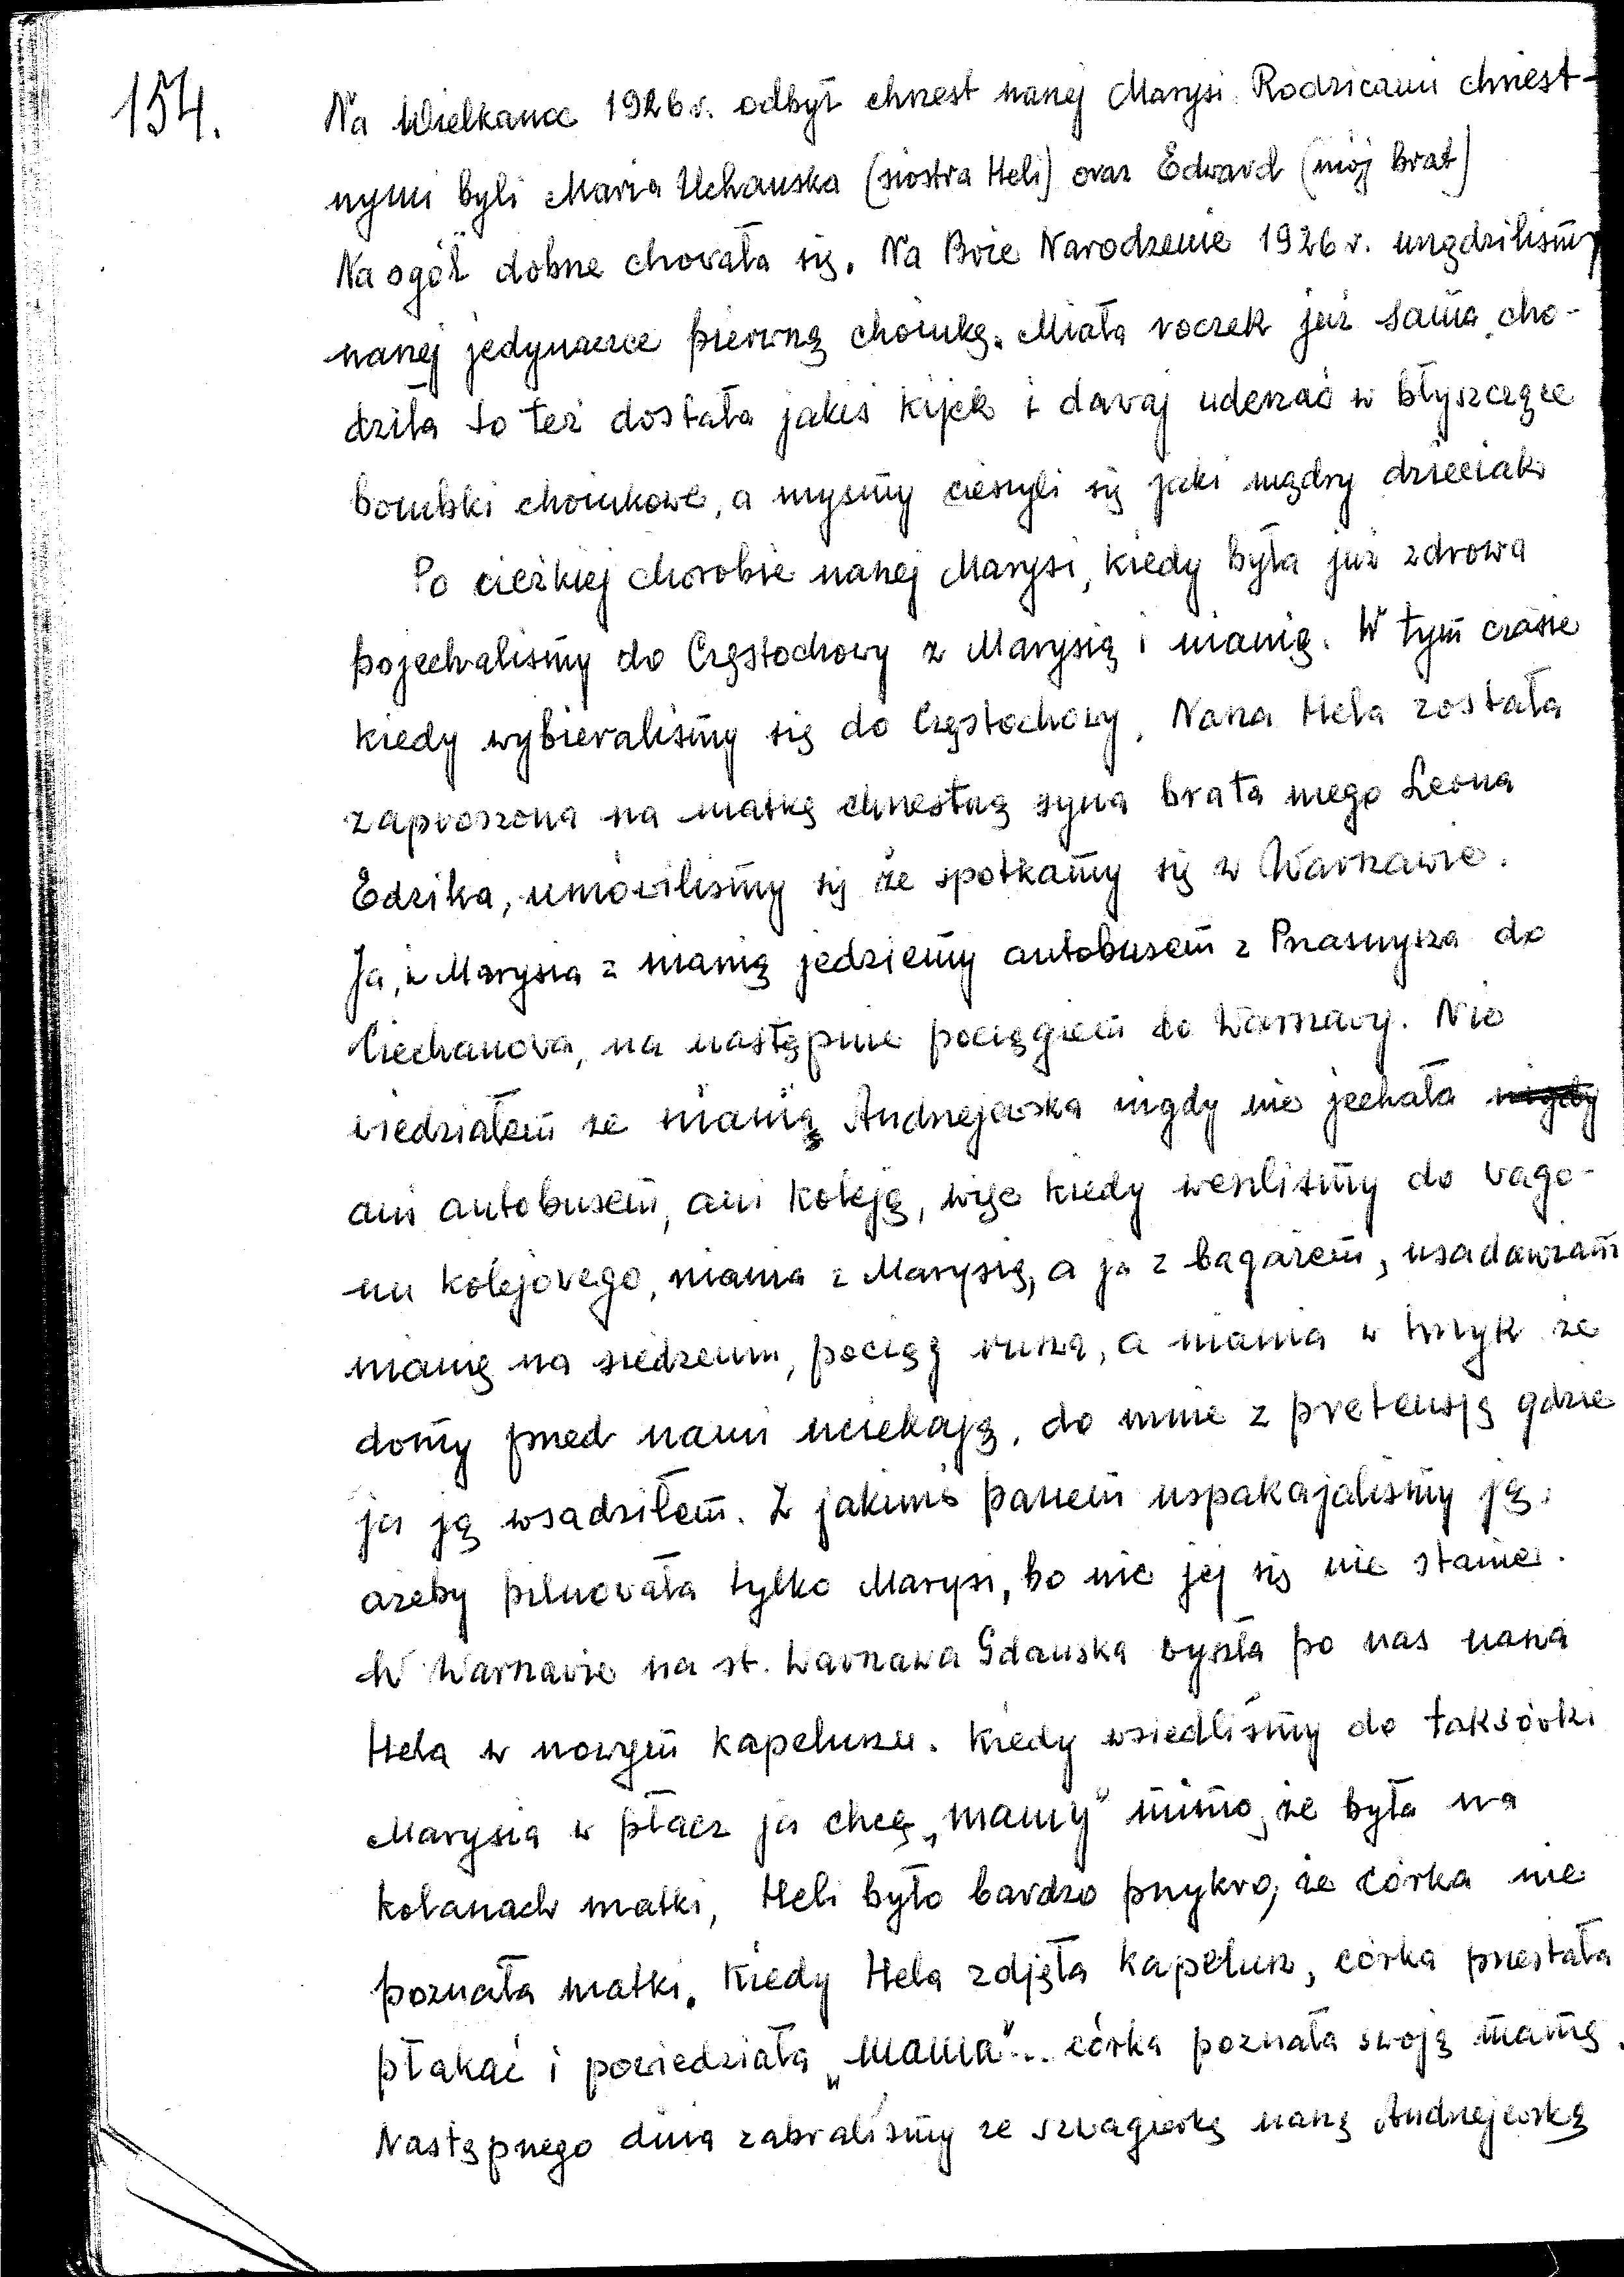 154.
Na Wielkanoc 1926 r. odbył chrzest naszej Marysi. Rodzicami chrzest-
nymi byli Maria Uchańska (siostra Heli) oraz Edward (mój brat)
Na ogół dobrze chowała się. Na Boże Narodzenie 1926 r. urządziliśmy
naszej jedynaczce pierwszą choinkę. Miała roczek już sama cho-
dziła to też dostała jakiś kijek i dawaj uderzać w błyszczące
bombki choinkowe, a myśmy cieszyli się jaki mądry dzieciak
Po ciężkiej chorobie naszej Marysi, kiedy była już zdrowa
pojechaliśmy do Częstochowy z Marysią i nianią. W tym czasie
kiedy wybieraliśmy się do Częstochowy, Nasza Hela została
zaproszona na matkę chrzestną syna brata mego Leona
Edzika, umówiliśmy się że spotkamy się w Warszawie.
Ja, i Marysia z nianią jedziemy autobusem z Przasnysza do
Ciechanowa, na następnie pociągiem do Warszawy. Nie
wiedziałem że nianią Andrzejewska nigdy nie jechała nigdy
ani autobusem, ani koleją, więc kiedy weszliśmy do wago-
nu kolejowego, niania z Marysią, a ja z bagażem, usadawiam
nianię na siedzeniu, pociąg rusza, a niania w krzyk że
domy przed nami uciekają, do mnie z pretensją gdzie
ja ją wsadziłem. Z jakimś panem uspakajaliśmy ją;
ażeby pilnowała tylko Marysi, bo nic jej się nie stanie.
W Warszawie na st. Warszawa Gdańska wyszła po nas nasza
Hela w nowym kapeluszu. Kiedy wsiedliśmy do taksówki
Marysia w płacz ja chcę „mamy" mimo, że była na
kolanach matki, Heli było bardzo przykro, że córka nie
poznała matki. Kiedy Hela zdjęła kapelusz, córka przestała
płakać i powiedziała „Mama"... córka poznała swoją mamę.
Następnego dnia zabraliśmy ze szwagierką naszą Andrzejewską